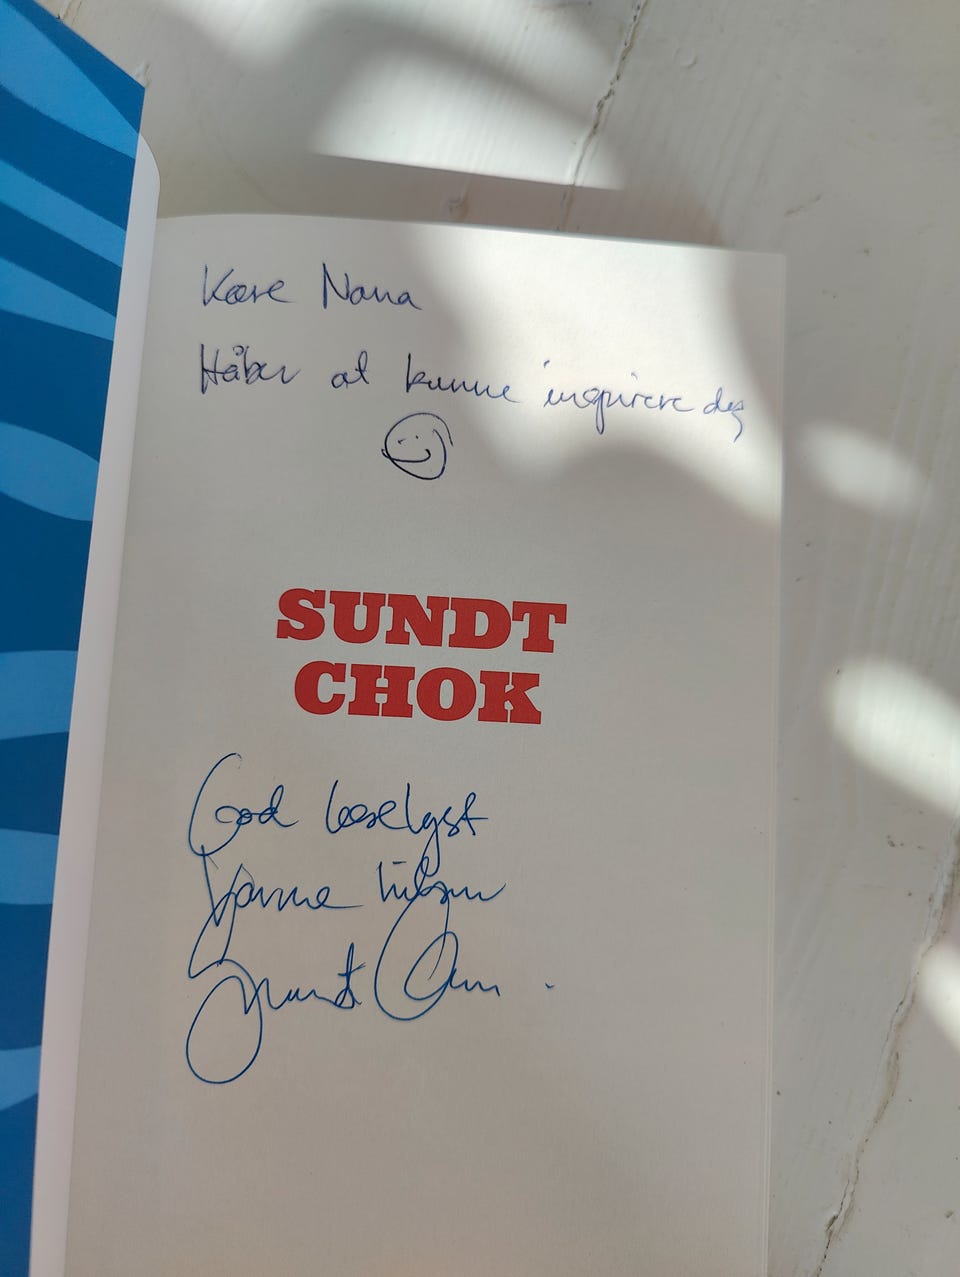 Kære Nanna
Håber at kunne inspirere dig
SUNDT
CHOK
God læselyst
Varme hilsner